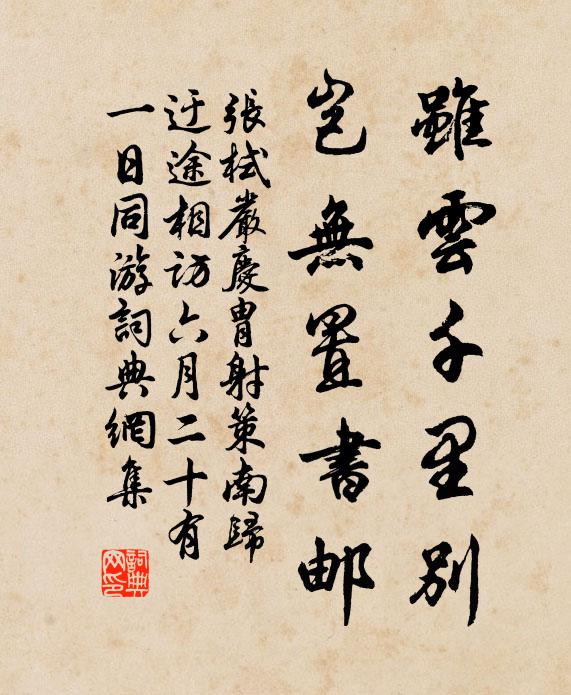 雖雲千里別
豈無置書邮
張栻嚴慶胄射策南歸
迂途相訪六月二十有
一日同游詞典網集
詞典
网印